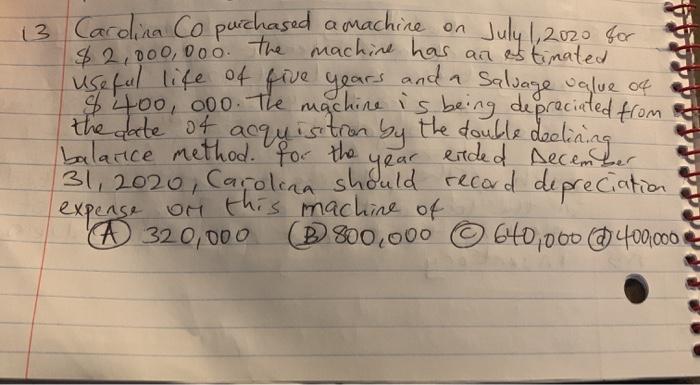 13 Carolina Co purchased a machine on July 1, 2020 for
$ 2,000,000. The machine has an estinated
useful life of five years and a Salvage value of
$ 400, 000. The machine is being depreciated from
the date of acquisition by the double declining
balance method. for the year ended December
31, 2020, Carolina should record depreciation
expense on this machine of
(A) 320,000 (B) 800,000 (C) 640,000 (d) 400,000